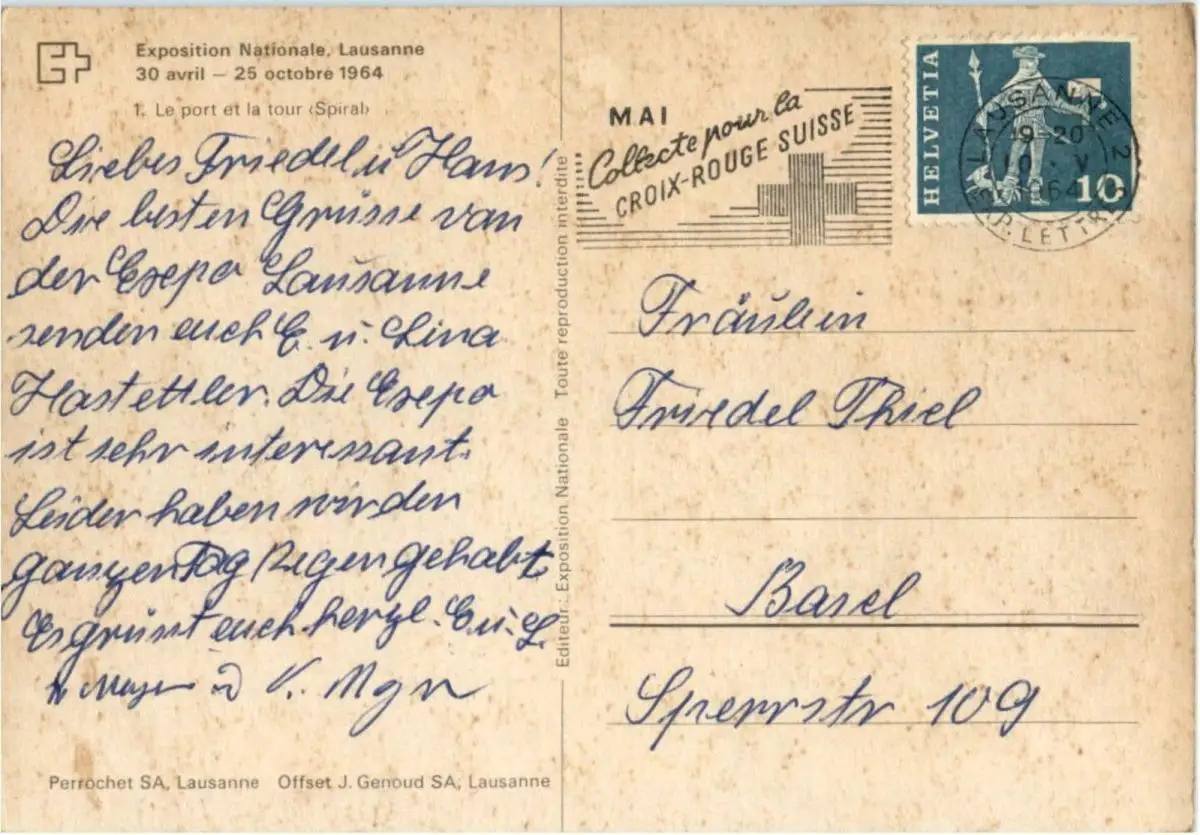 Exposition Nationale, Lausanne
30 avril – 25 octobre 1964
1. Le port et la tour ‹Spiral›
Liebes Friedel u Hans!
Die besten Grüsse van
der Exepo Lausanne
senden euch E. u. Lina
Hastettler. Die Exepo
ist sehr interessant.
Leider haben wir den
ganzen Tag Regen gehabt
Es grüsst euch herzl. E. u. L.
Perrochet SA, Lausanne Offset J. Genoud SA, Lausanne
Editeur: Exposition Nationale Toute reproduction interdite
MAI
Collecte pour la
CROIX-ROUGE SUISSE
HELVETIA
10
LAUSANNE 2
9-20
10. V
1964
EXP. LETTRES
Fräulein
Friedel Thiel
Basel
Sperrstr 109